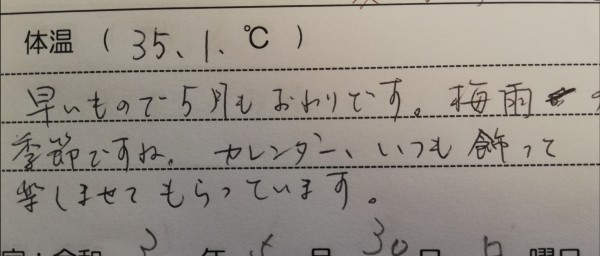 体温 ( 35、1、℃ )
早いもので5月もおわりです。梅雨の
季節ですね。カレンダー、いつも飾って
楽しませてもらっています。
令和 3 年 5 月 30 日 日 曜日